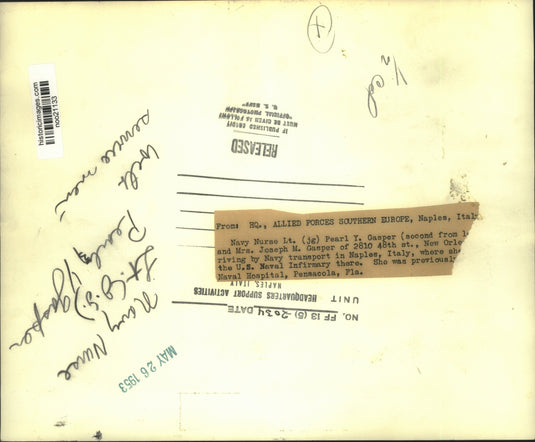 historicimages.com
noc21133
½ col
IF PUBLISHED CREDIT
MUST BE GIVEN AS FOLLOWS
"OFFICIAL PHOTOGRAPH
U. S. NAVY"
RELEASED
From: HQ., ALLIED FORCES SOUTHERN EUROPE, Naples, Italy
Navy Nurse Lt. (jg) Pearl Y. Gasper (second from l
and Mrs. Joseph M. Gasper of 2810 48th st., New Orle
riving by Navy transport in Naples, Italy, where she
the U.S. Naval Infirmary there. She was previously
Naval Hospital, Pensacola, Fla.
NO. FF 13 (5)-2034 DATE
UNIT HEADQUARTERS SUPPORT ACTIVITIES
NAPLES, ITALY
MAY 26 1953
Navy Nurse
Lt. (j.g.)
Pearl Y Gasper
with
service men